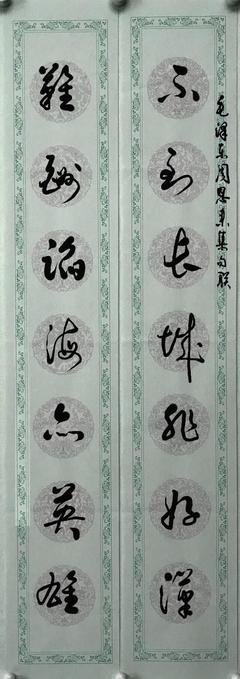 毛泽东周恩来集句联
不到长城非好漢
難酬蹈海亦英雄